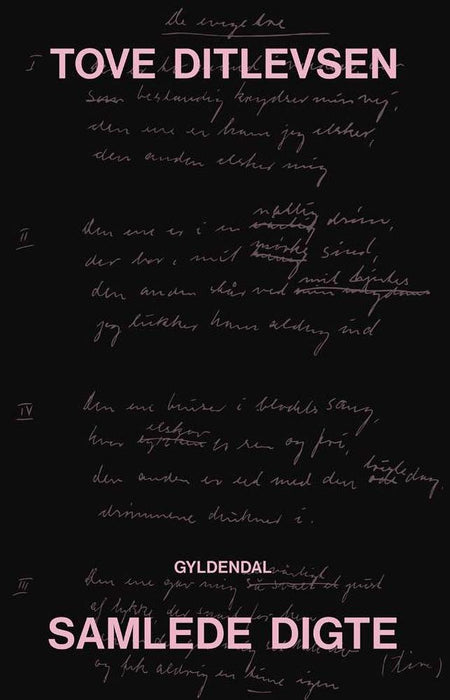 De evige tre
TOVE DITLEVSEN
I
som bestandig krydser min vej,
den ene er ham jeg elsker,
den anden elsker mig
II
Den ene er i en natlig drøm,
der bor i mit mørke sind,
den anden står ved mit hjertes
jeg lukker ham aldrig ind
IV
Den ene bruser i blodets sang,
hvor elskov er ren og fri,
den anden er ét med den dag,
drømmene drukner i.
GYLDENDAL
III
Den ene gav mig et pust
af lykke der
SAMLEDE DIGTE
og fik aldrig en time igen
(time)